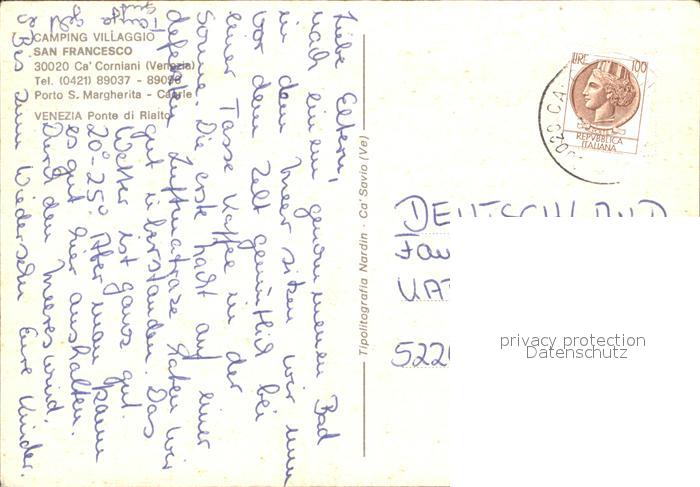 CAMPING VILLAGGIO
SAN FRANCESCO
30020 Ca' Corniani (Venezia)
Tel. (0421) 89037 - 89098
Porto S. Margherita - Caorle
VENEZIA Ponte di Rialto
Liebe Eltern,
nach einem genommenen Bad
in dem Meer sitzen wir nun
vor dem Zelt gemütlich bei
einer Tasse Kaffee in der
Sonne. Die erste Nacht auf einer
defekten Luftmatraze haben wir
gut überstanden. Das
Wetter ist ganz gut.
20°-25°. Aber man kann
es gut hier aushalten.
Durch den Meereswind.
Bis zum Wiedersehn Eure Kinder.
Tipolitografia Nardin - Ca' Savio (Ve)
LIRE 100
REPVBBLICA
ITALIANA
DEUTSCHLAND
522
privacy protection
Datenschutz